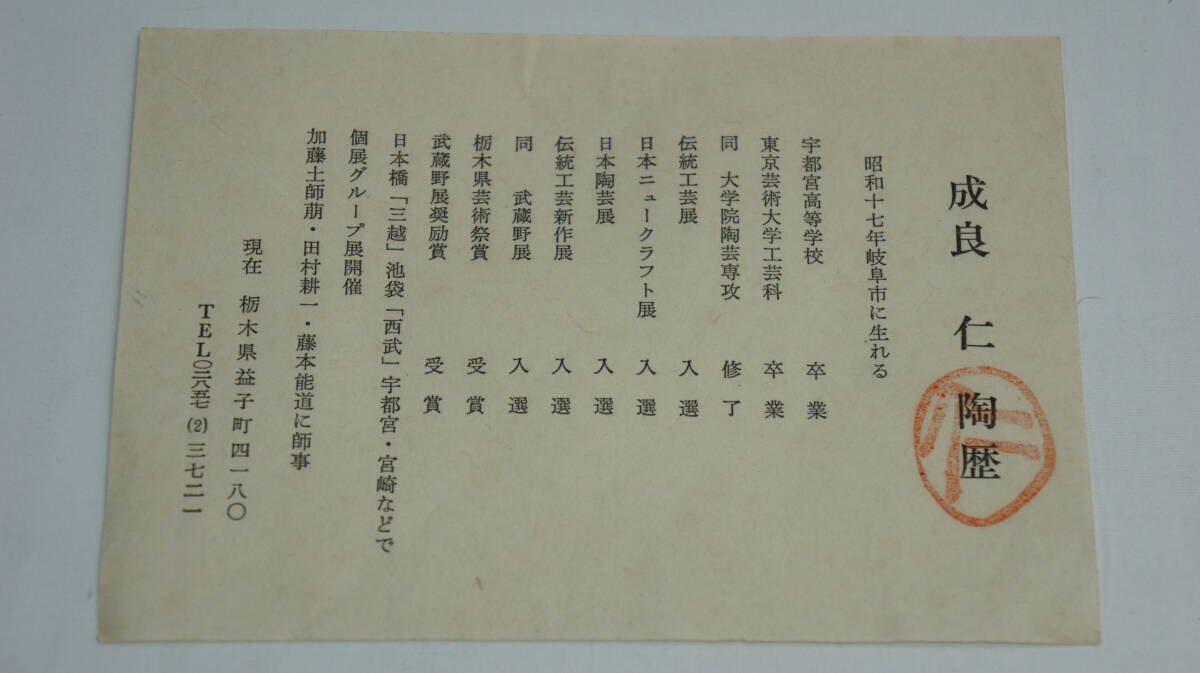 成良 仁 陶歴
仁
昭和十七年岐阜市に生れる
宇都宮高等学校 卒業
東京芸術大学工芸科 卒業
同 大学院陶芸専攻 修了
伝統工芸展 入選
日本ニュークラフト展 入選
日本陶芸展 入選
伝統工芸新作展 入選
同 武蔵野展 入選
栃木県芸術祭賞 受賞
武蔵野展奨励賞 受賞
日本橋「三越」池袋「西武」宇都宮・宮崎などで
個展グループ展開催
加藤土師萌・田村耕一・藤本能道に師事
現在 栃木県益子町四一八〇
TEL〇二八五七(2)三七二一